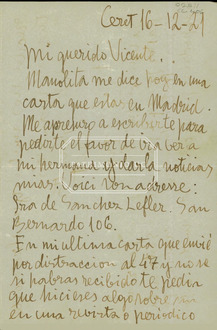 Ceret 16-12-29
Mi querido Vicente.
Manolita me dice hoy en una
carta que estas en Madrid.
Me apresuro a escribirte para
pedirte el favor de ir a ver a
mi hermana y darla noticias
mias. Voici son adresse:
Sra de Sanchez Lefler. San
Bernardo 106.
En mi ultima carta que envié
por distraccion al 47 y no se
si habras recibido te pedia
que hicieses algo sobre
en una revista o periodico